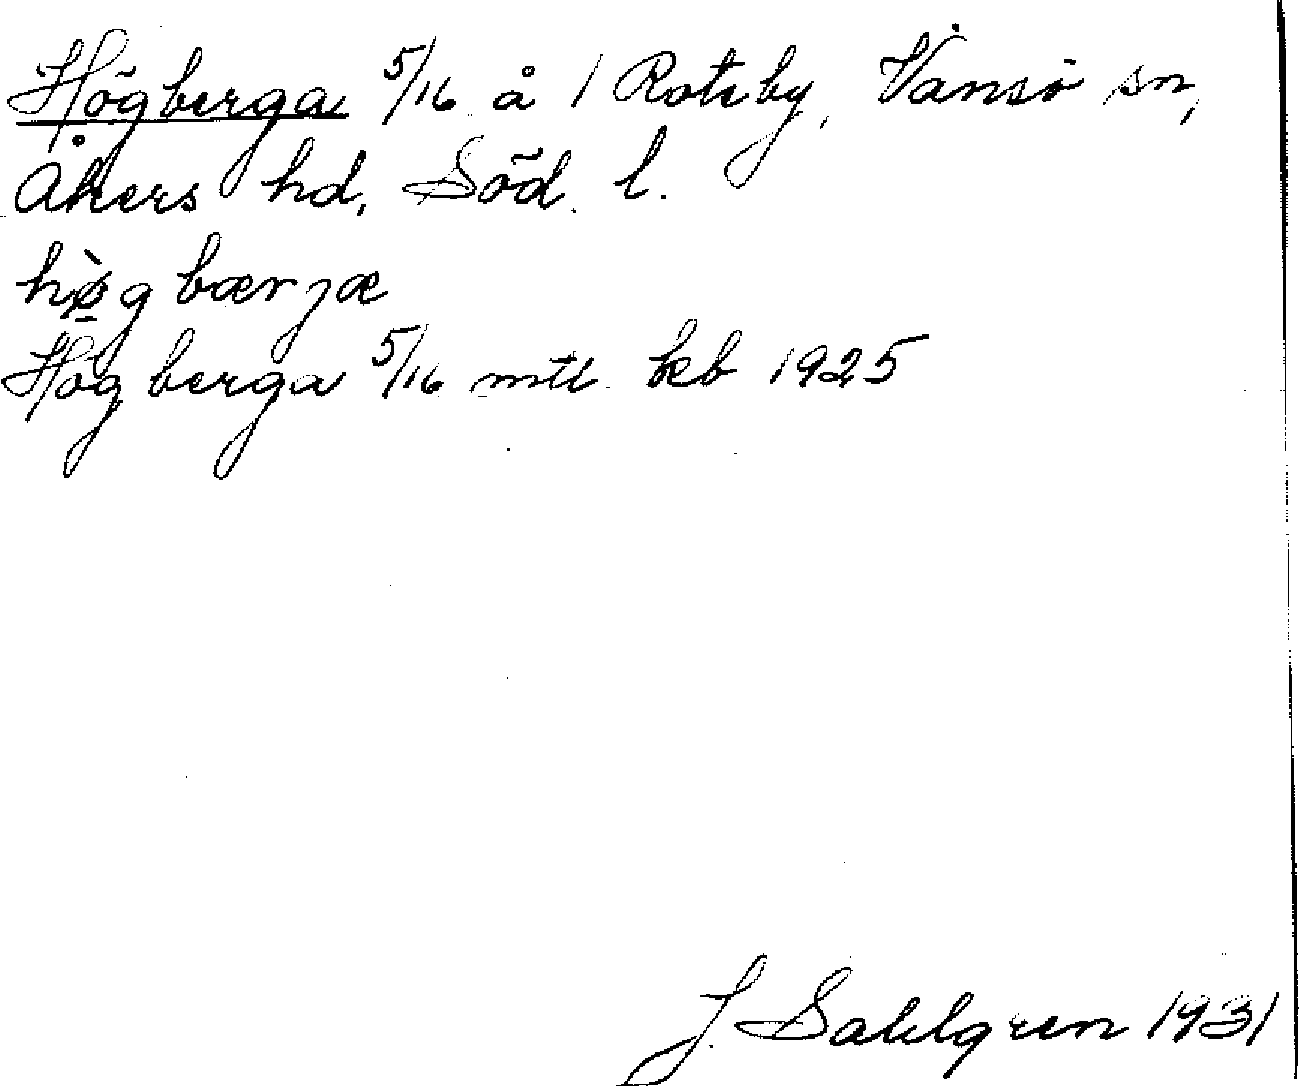 Högberga 5/16 å 1 Rotsby, Vånsö sn,
Åkers hd, Söd. l.
hø̀g bærjæ
Högberga 5/16 mtl keb 1925
J. Sahlgren 1931